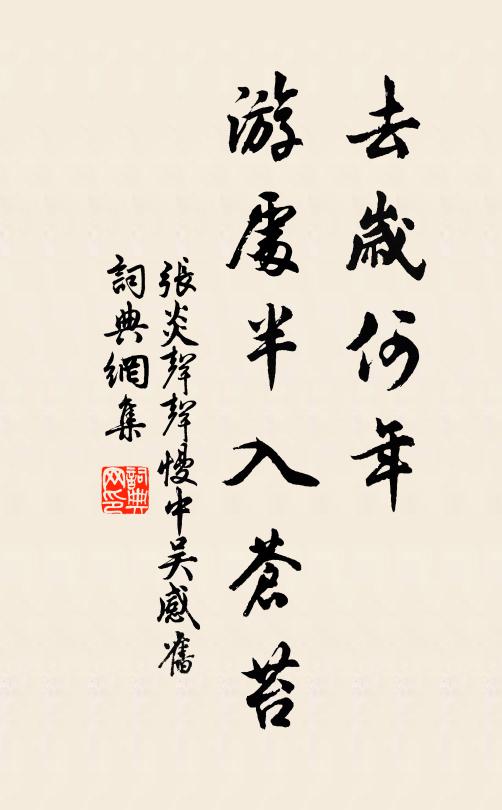 去歲何年
游處半入蒼苔
張炎聲聲慢中吴感舊
詞典網集
詞典網印